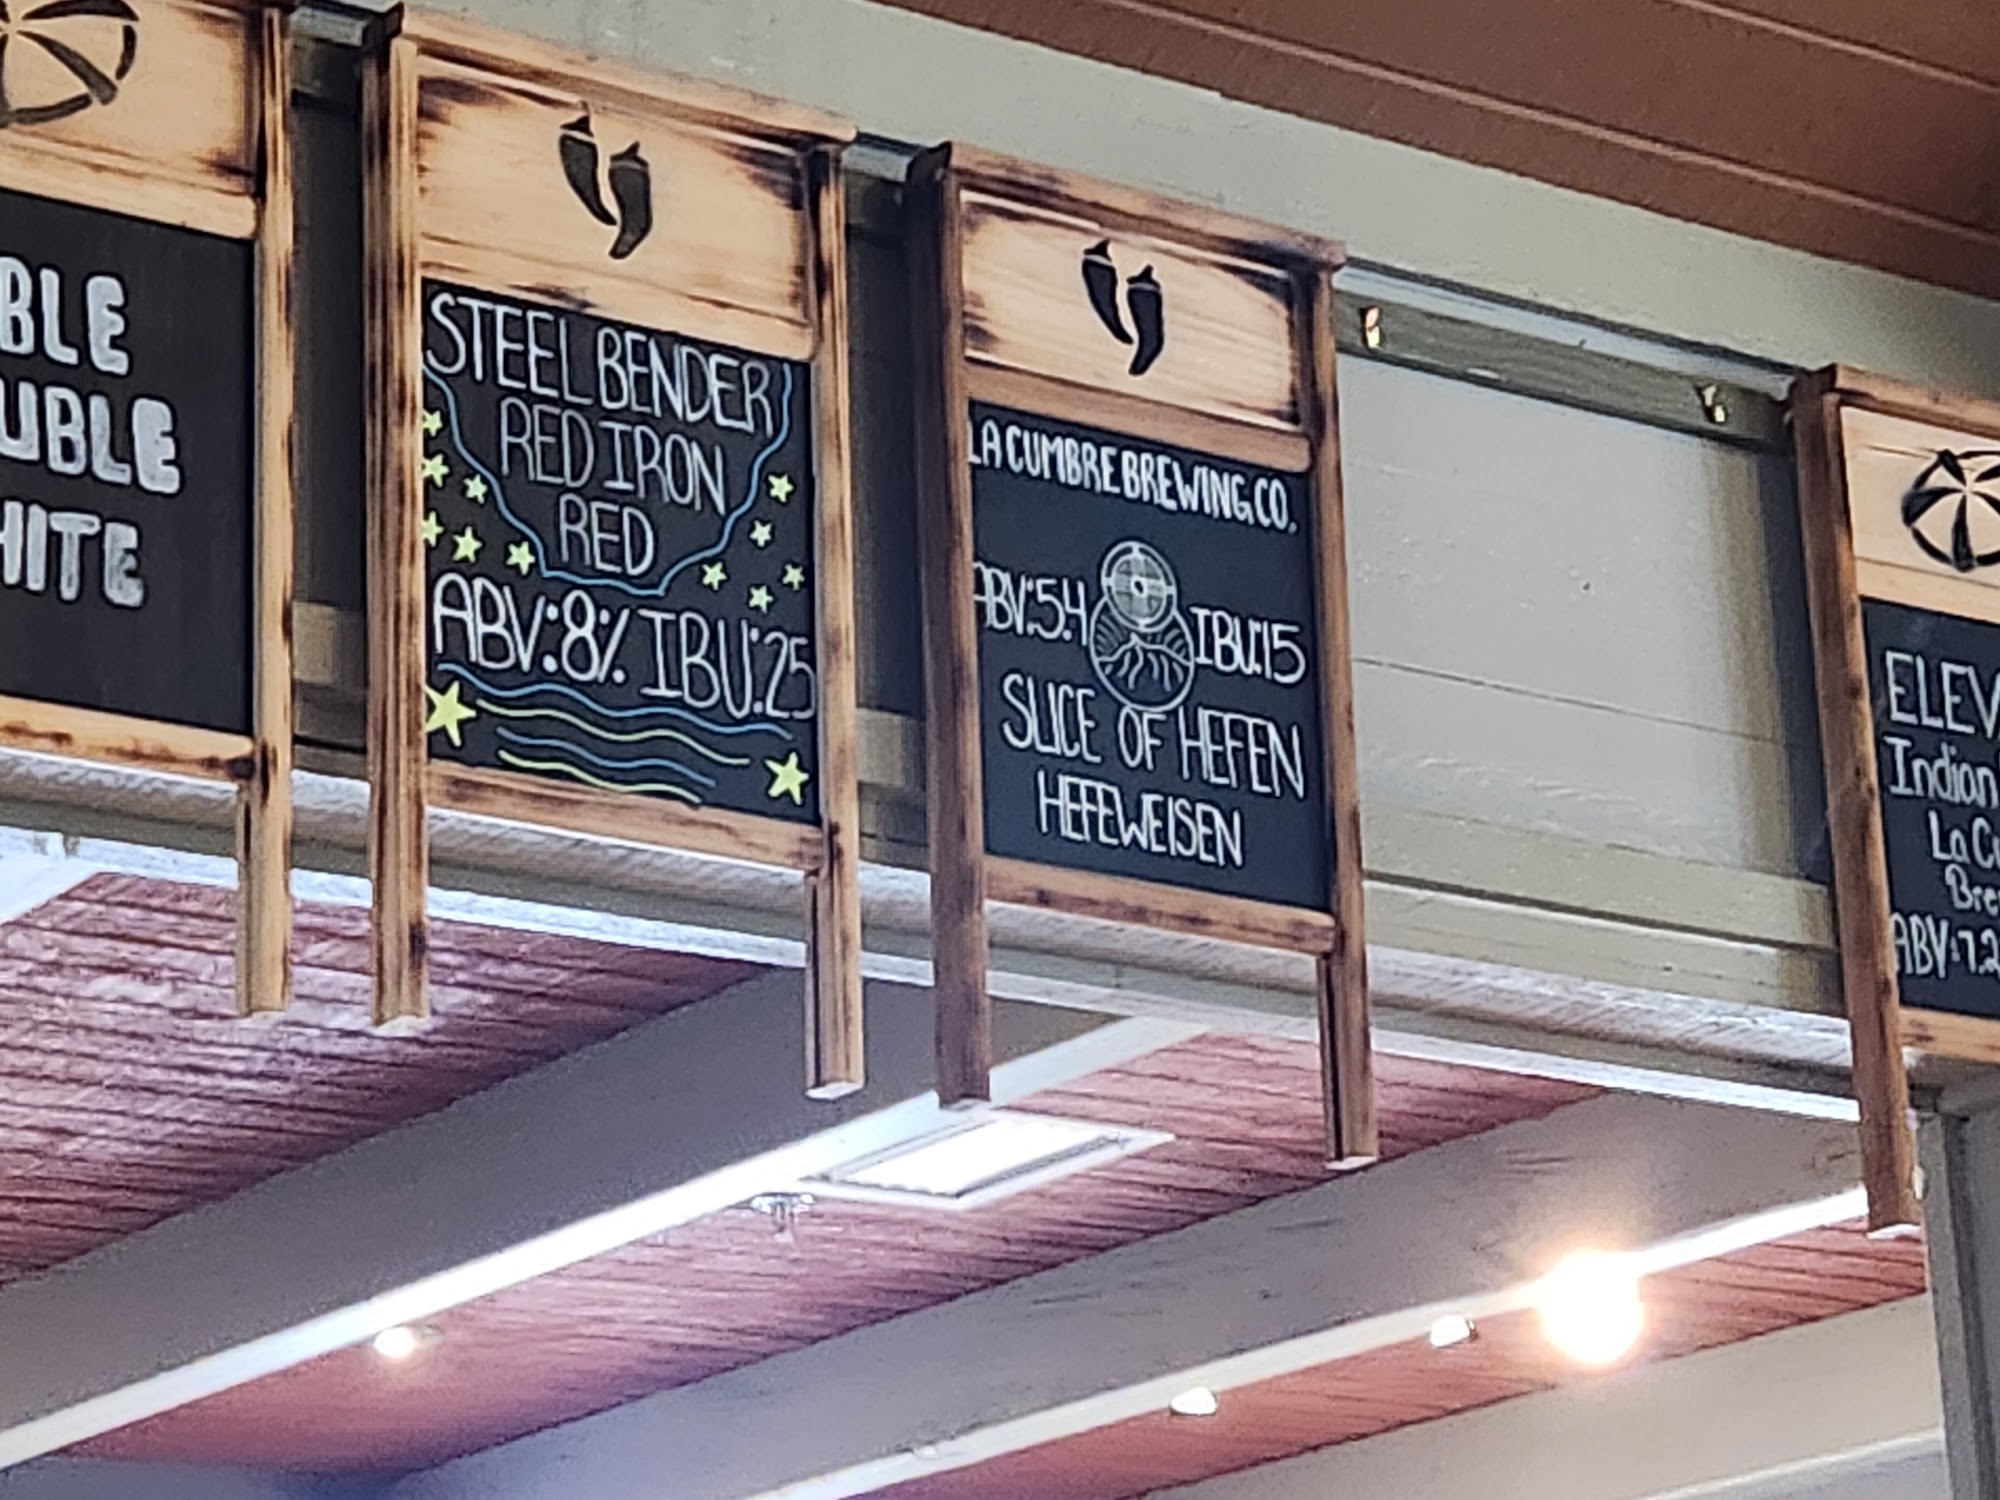 BLE
UBLE
HITE
STEEL BENDER
RED IRON
RED
ABV:8% IBU:25
LA CUMBRE BREWING CO.
ABV:5.4 IBU:15
SLICE OF HEFEN
HEFEWEISEN
ELEV
Indian
La Cu
Bre
ABV:7.2